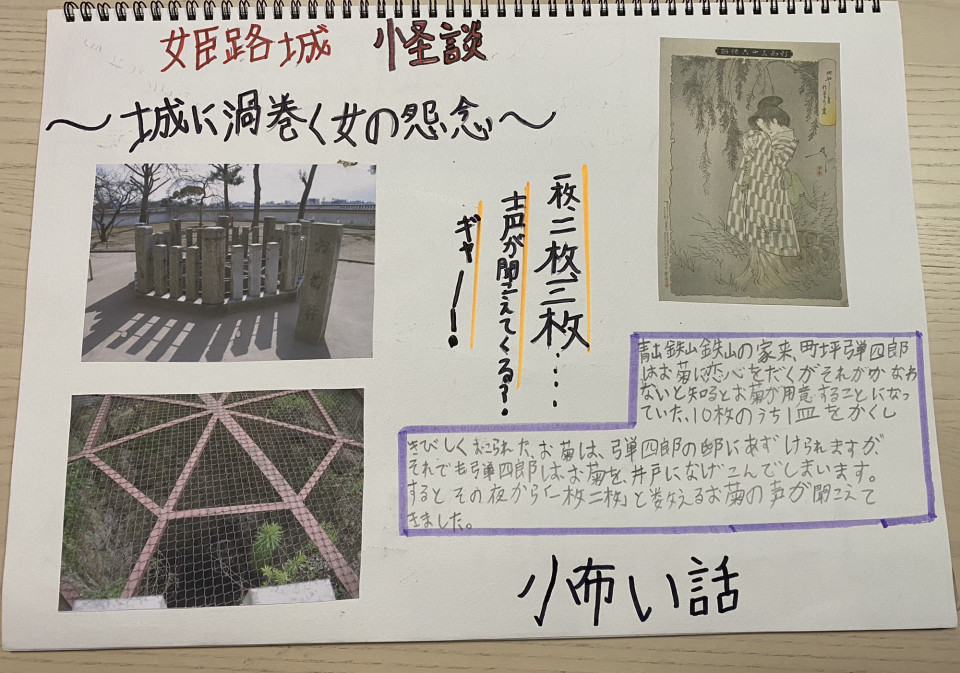 姫路城 怪談
〜城に渦巻く女の怨念〜
一枚、二枚、三枚・・・・
声が聞こえてくる？。
ギャー！
お菊井
青山鉄山の家来、町坪弾四郎
はお菊に恋心をだくがそれがかなわ
ないと知るとお菊が用意することになっ
ていた、10枚のうち1皿をかくし
きびしくおこられた、お菊は、弾四郎の邸にあずけられますが、
それでも弾四郎は、お菊を、井戸になげこんでしまいます。
するとその夜から「一枚二枚」と数えるお菊の声が聞こえて
きました。
怖い話